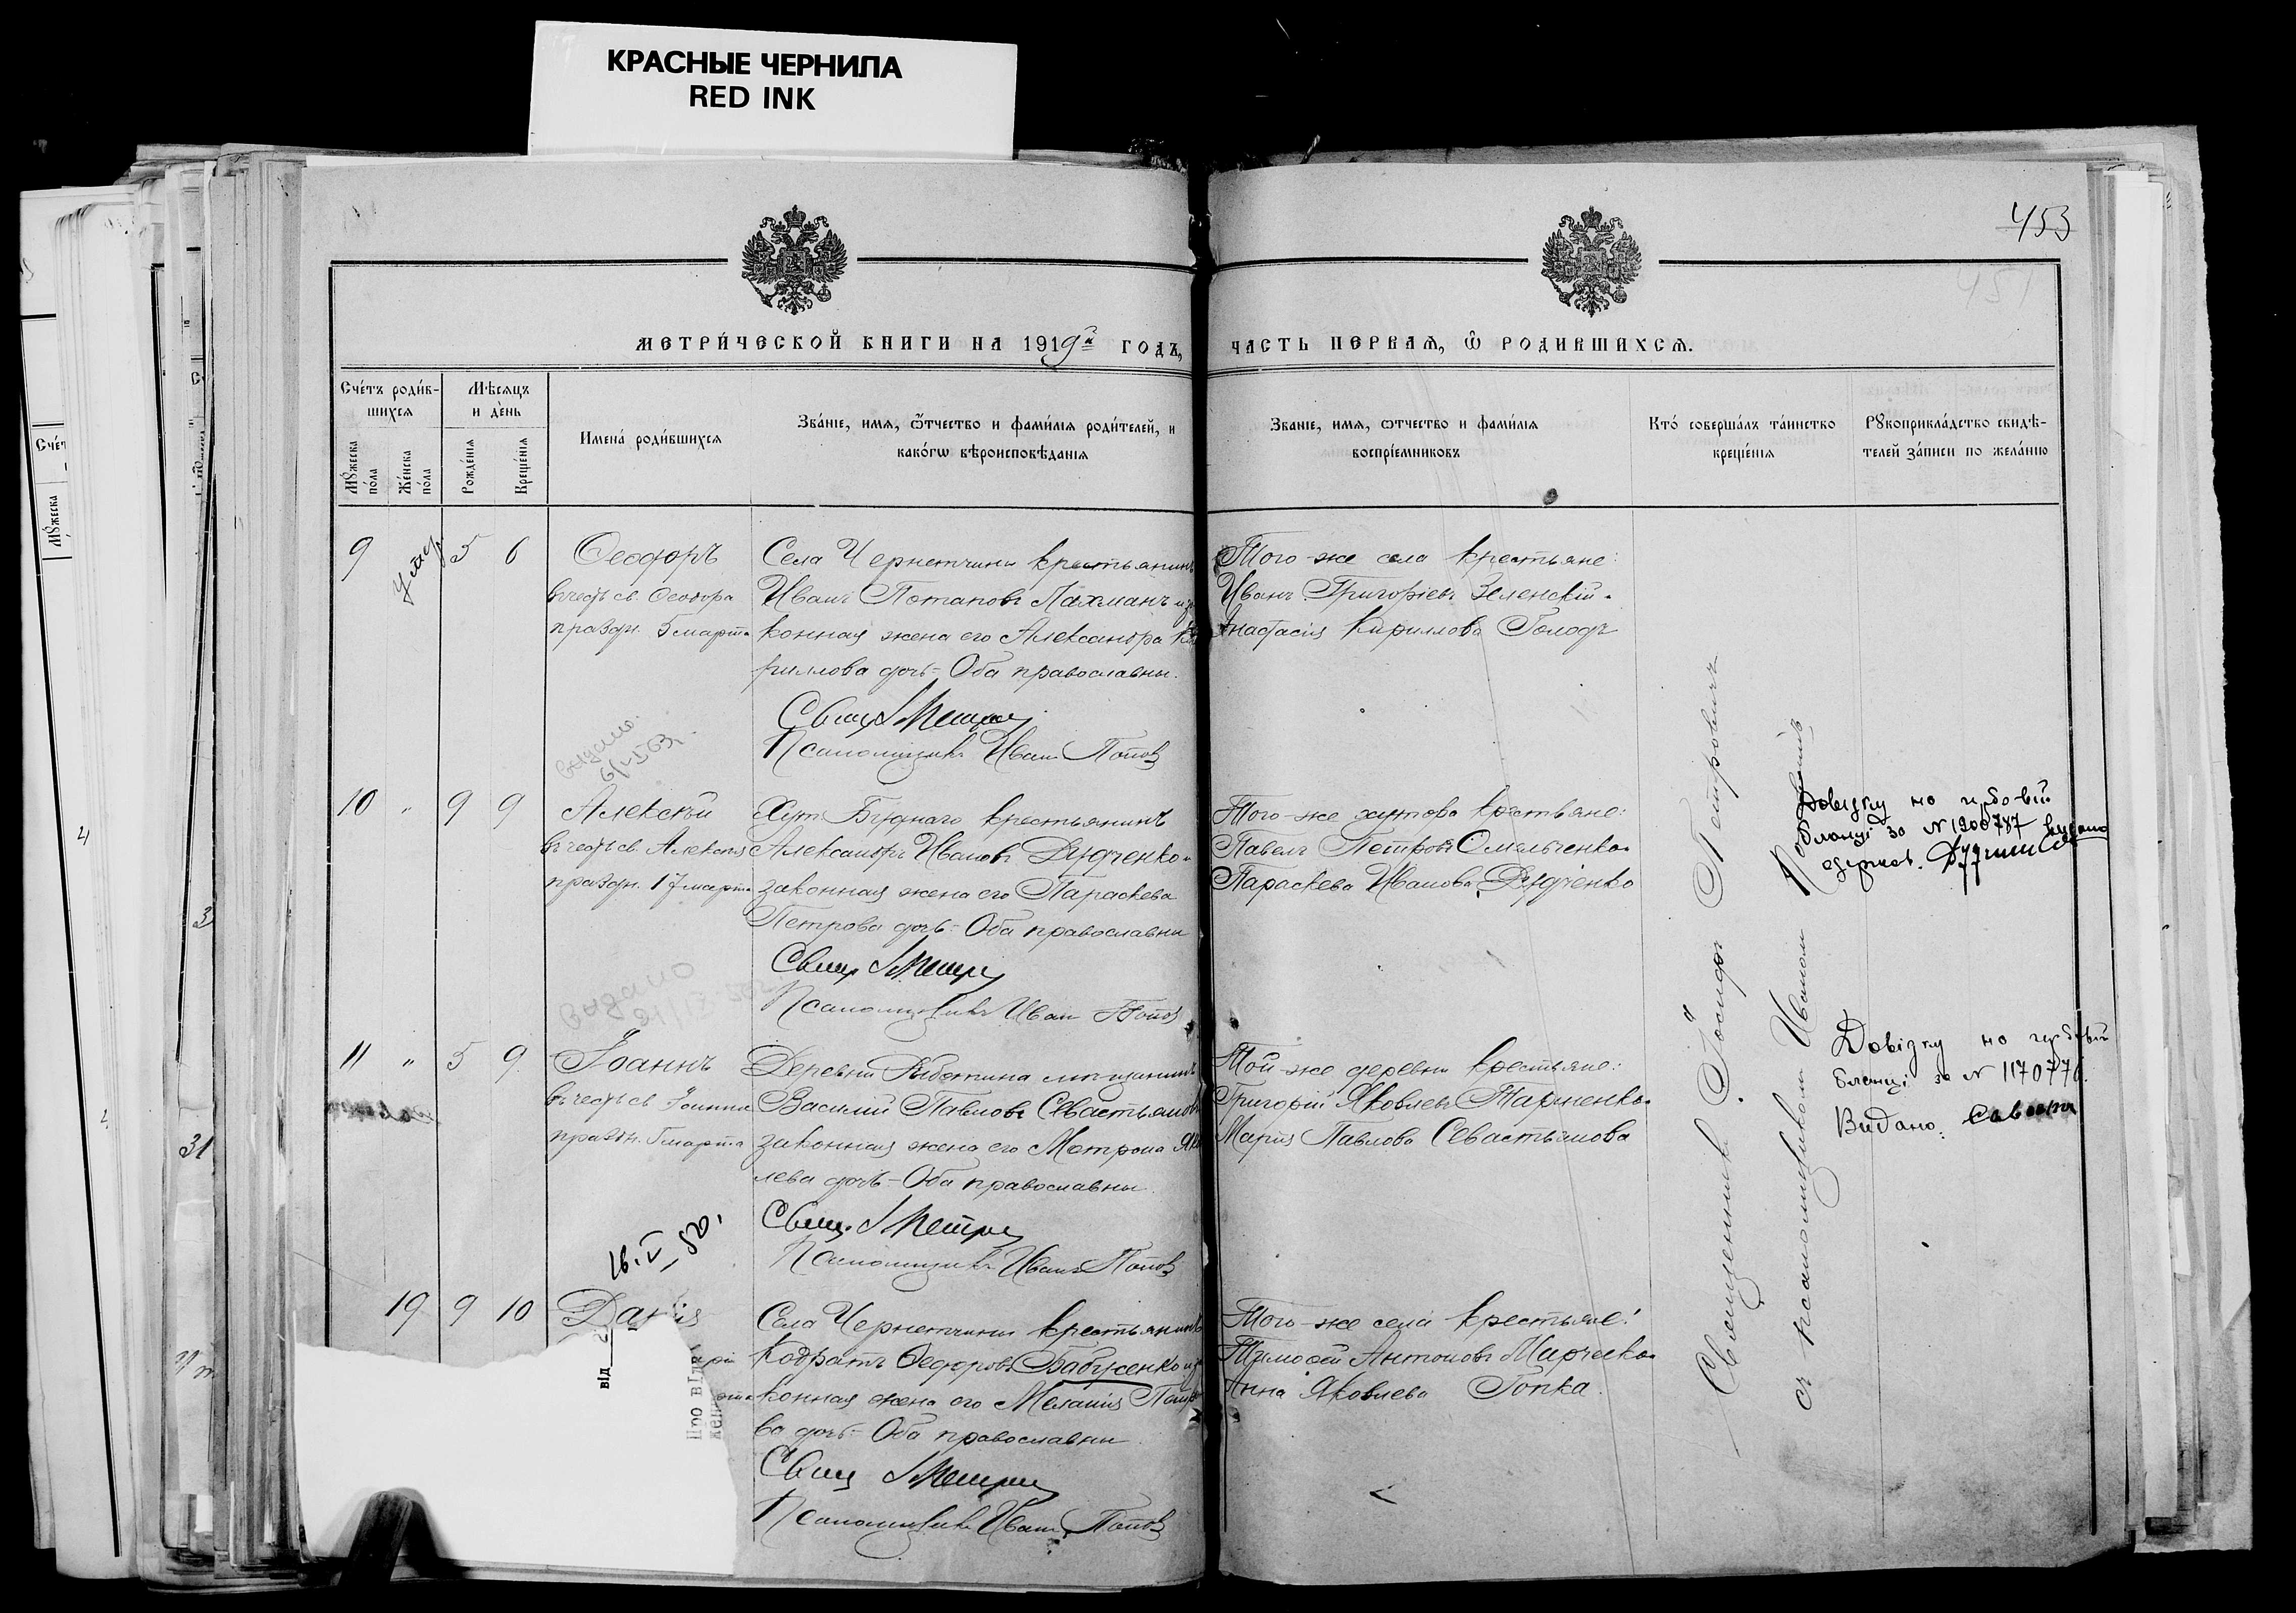 КРАСНЫЕ ЧЕРНИЛА
RED INK
453
451
МЕТРИ́ЧЕСКОЙ КНИГИ НА 1919й ГОДЪ,
ЧАСТЬ ПЕРВАѦ, Ѽ РОДИВШИХСѦ.
Сче́тъ роди́в-
шихсѧ
Мѣ́сѧцъ
и де́нь
Мꙋ́жеска
по́ла
Же́нска
по́ла
Рожде́нїѧ
Креще́нїѧ
Имена́ роди́вшихсѧ
Зва́нїе, имѧ, ѿтчество и фами́лїѧ роди́телей, и
како́гѡ вѣроисповѣ́данїѧ
Званїе, имѧ, ѿтчество и фами́лїѧ
воспрїе́мниковъ
Кто́ соверша́лъ та́инство
креще́нїѧ
Рꙋкоприкла́дство свидѣ́-
телей за́писи по жела́нїю
9
5 6
Ѳеодоръ
въ честь св. Ѳеодора
праздн. 5 марта
Села Чернетчины крестьянинъ
Иванъ Потаповъ Лахманъ и за
конная жена его Александра Ки
риллова дочь - Оба православны.
Свящ.
Псаломщикъ Иванъ Попов
Того-же села крестьяне:
Иванъ Григорiевъ Зеленскiй и
Анастасiя Кириллова Голодъ
видано
10 " 9 9
Алексѣй
въ честь св. Алексiя
праздн. 17 марта
Хут. Буднаго крестьянинъ
Александръ Ивановъ Дудченко и
законная жена его Параскева
Петрова дочь - Оба православны
Свящ.
Псаломщикъ Иван Попов
Того-же хутора крестьяне:
Павелъ Петровъ Омельченко и
Параскева Иванова Дудченко
Довідку на гербовій
бланці за № 1200787 видано
одержав.
видано
11 " 5 9
Іоаннъ
въ честь св. Іоанна
праздн. 5 марта
Деревни Рыботина мѣщанинъ
Василiй Павловъ Севастьяновъ
законная жена его Матрона Яков
лева дочь - Оба православны
Свящ.
Псаломщикъ Иванъ Попов
Той-же деревни крестьяне:
Григорiй Яковлевъ Тарненко и
Марiя Павлова Севастьянова
Довідку на гербовій
бланці за № 1170776.
Видано:
16. V 52.
19 9 10
Дарiя
від
Про ВІД
Села Чернетчины крестьянинъ
Кодратъ Ѳедоровъ Бабусенко и за
конная жена его Меланiя Петро
ва дочь - Оба православны
Свящ.
Псаломщикъ Иванъ Попов
Того-же села крестьяне:
Тимоѳей Антоновъ Марченко и
Анна Яковлева Гопка.
Священникъ Іосифъ Петровичъ
съ псаломщикомъ Иваномъ Поповымъ